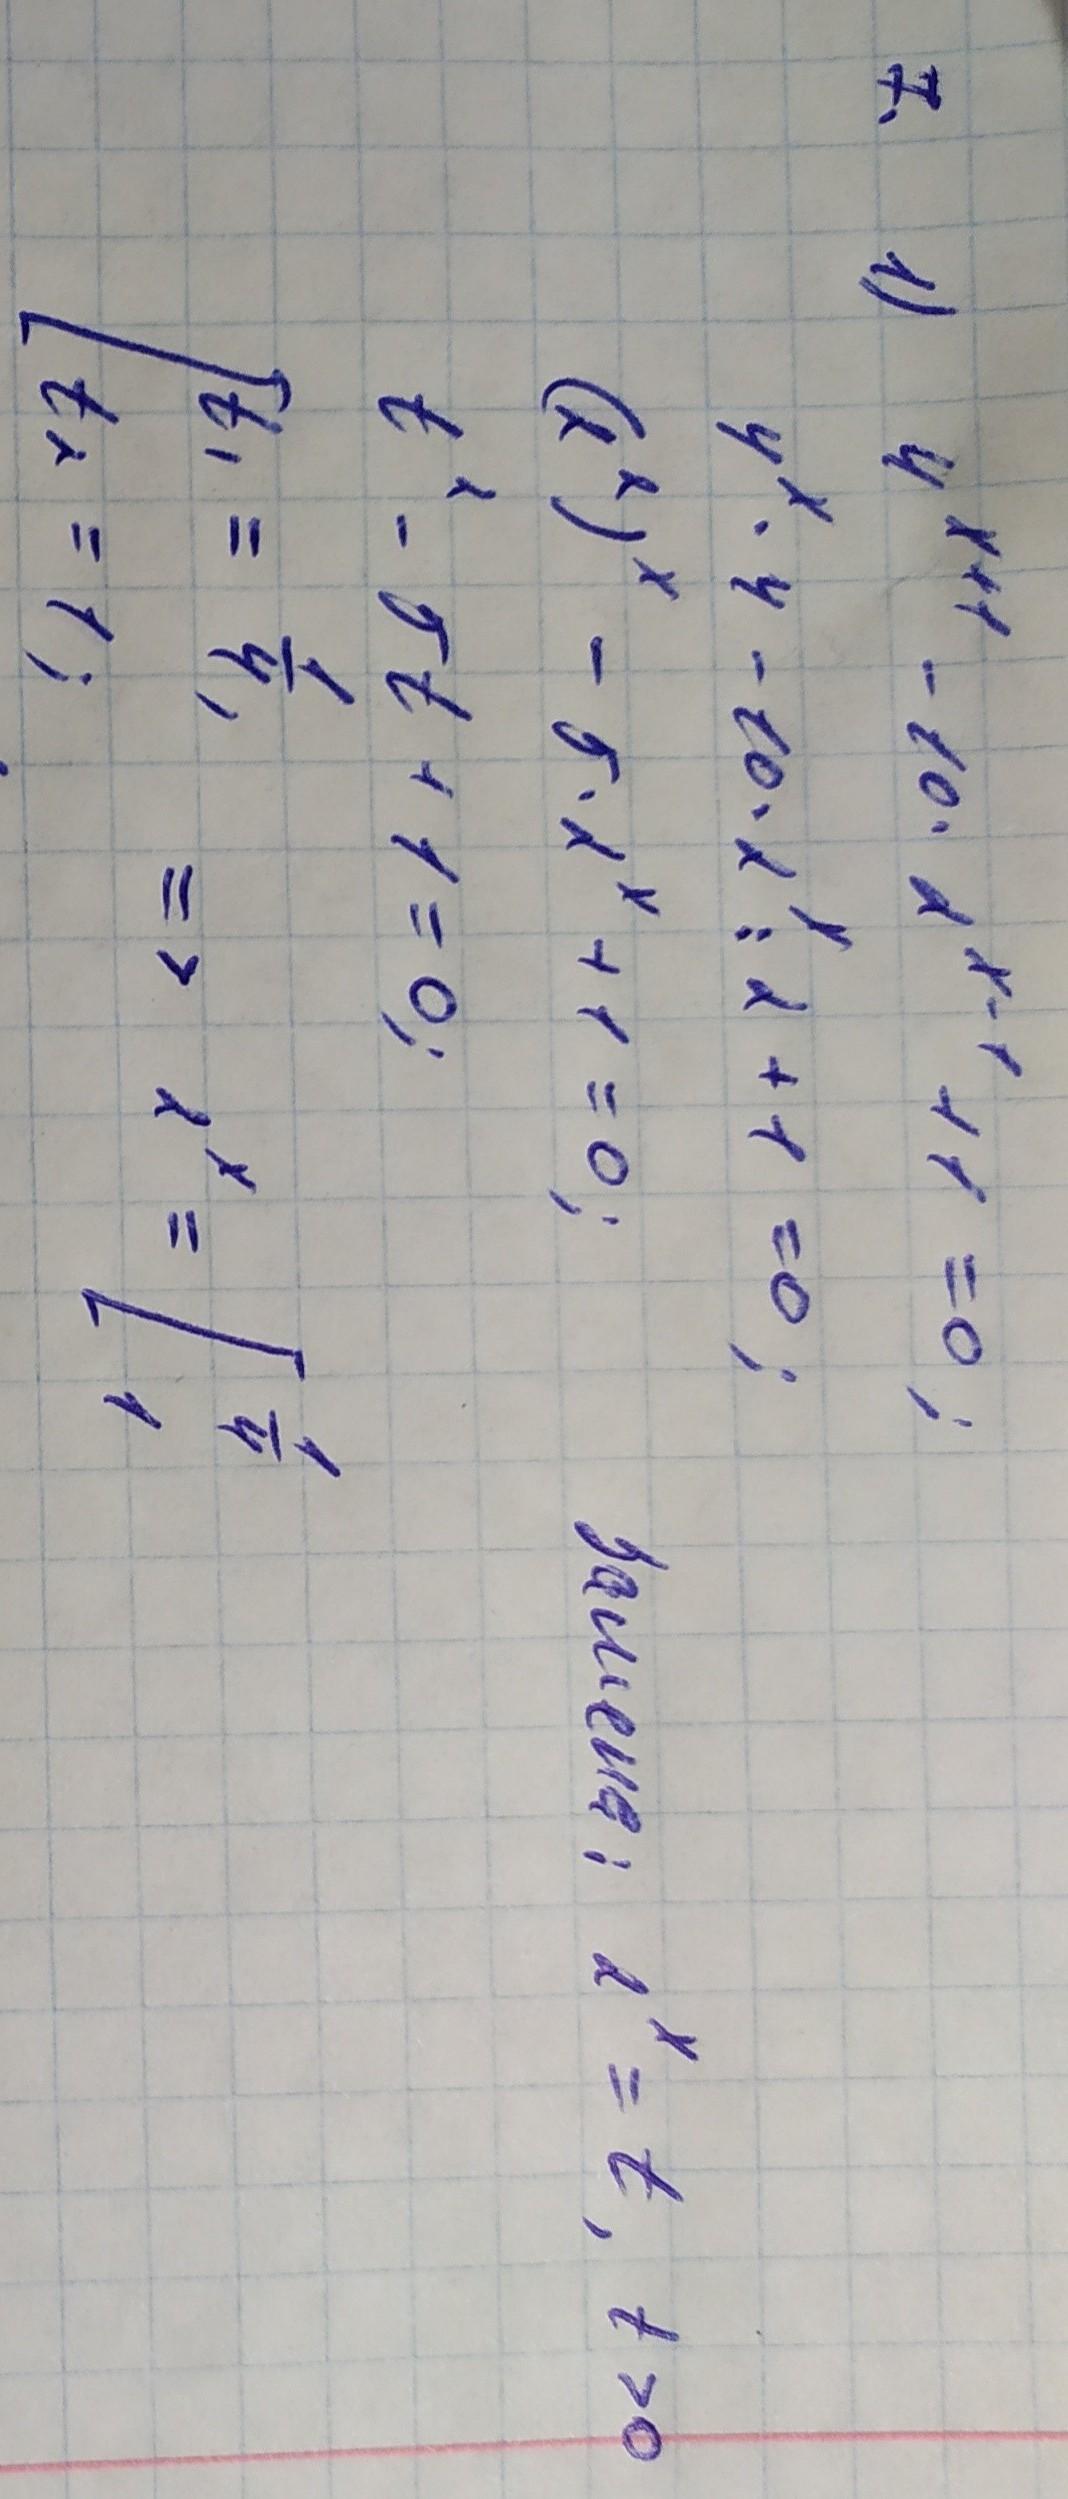 I. 1) 4^{x+1} - 10·2^{x-1} + 1 = 0;
4^x · 4 - 10·2^x : 2 + 1 = 0;
(2^2)^x - 5·2^x + 1 = 0; Замена: 2^x = t, t > 0
t^2 - 5t + 1 = 0;
[ t_1 = 1/4; => 2^x = [ 1/4
t_2 = 1; 1